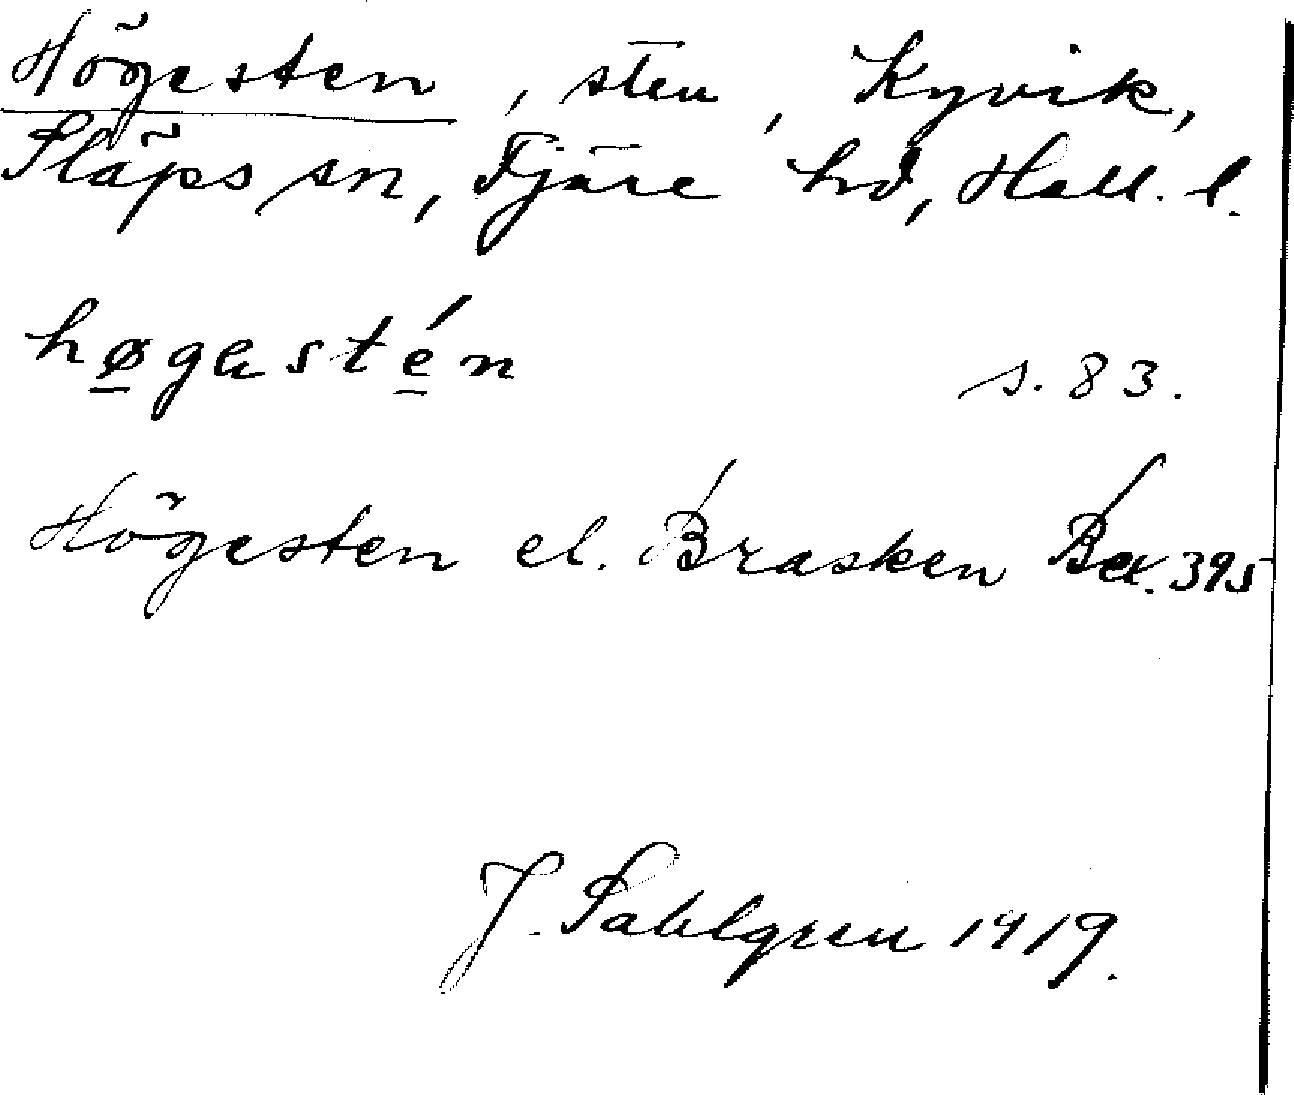 Högesten, sten, Kyvik,
Släps sn, Fjäre hd, Hall. l.
høgastén s. 83.
Högesten el. Brasken Bex. 395
J. Sahlgren 1919.